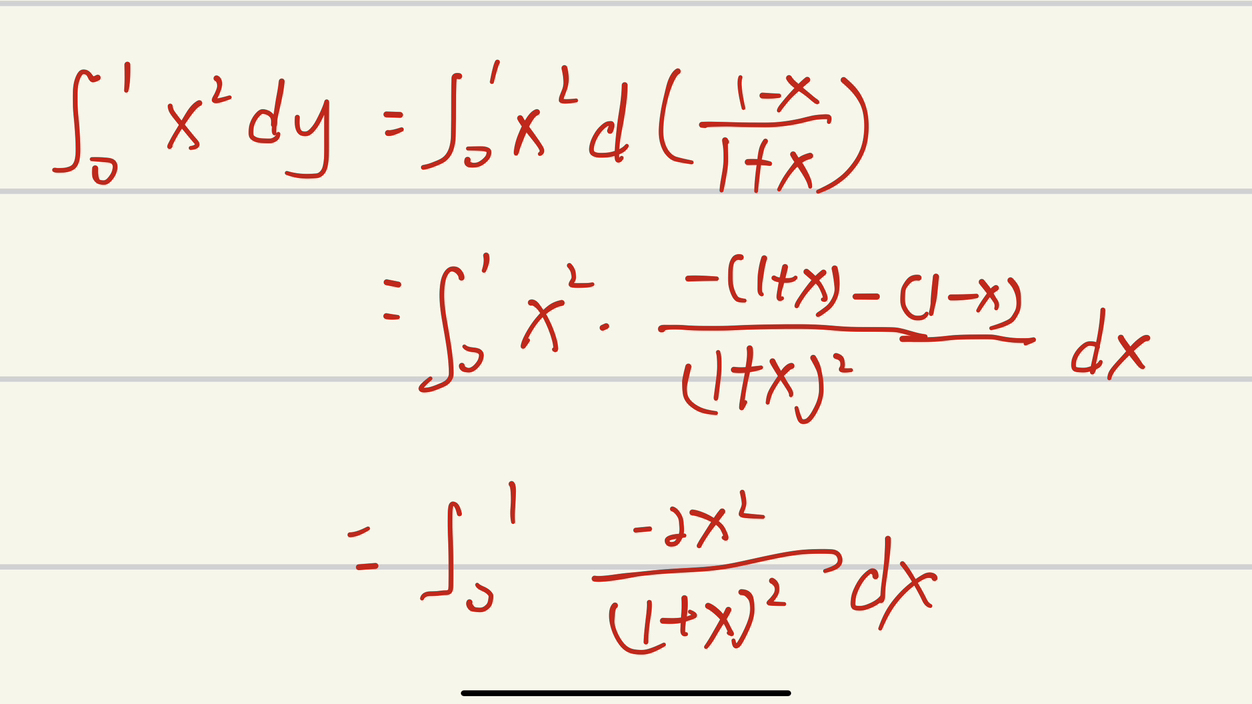 ∫₀¹ x² dy = ∫₀¹ x² d((1-x)/(1+x))
= ∫₀¹ x² · (-(1+x) - (1-x))/(1+x)² dx
= ∫₀¹ (-2x²)/(1+x)² dx